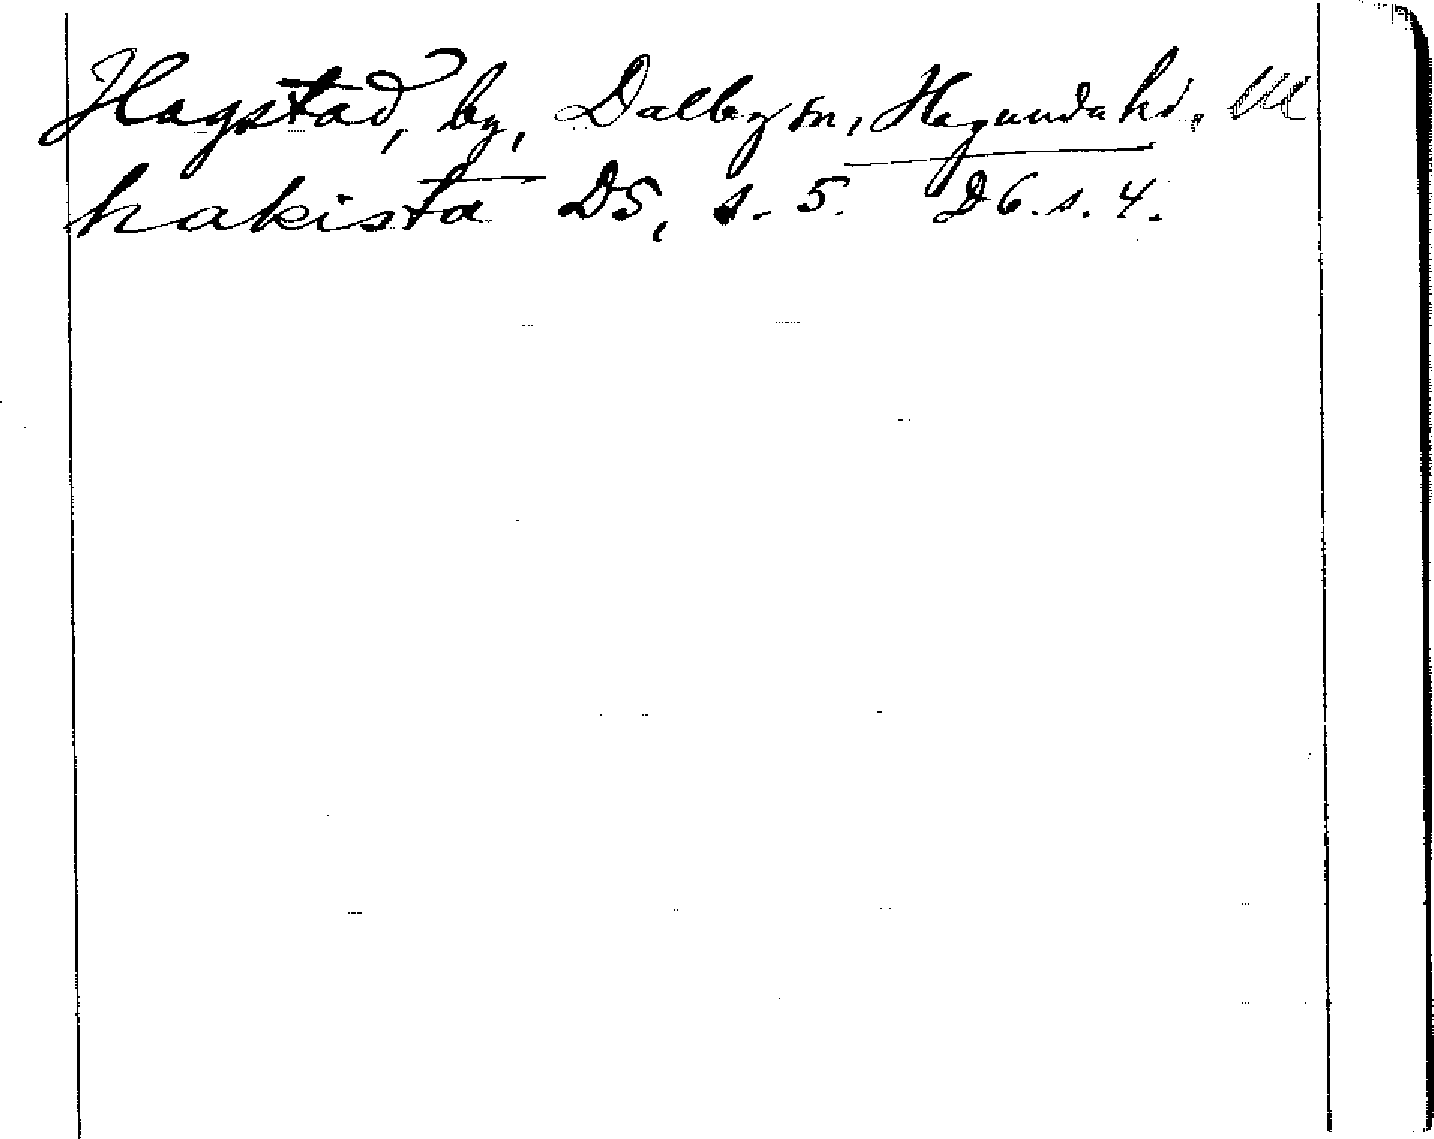 Hagstad, by, Dalby sn, Hagunda hd, Ul
hakista D5, s. 5. D6. s. 4.